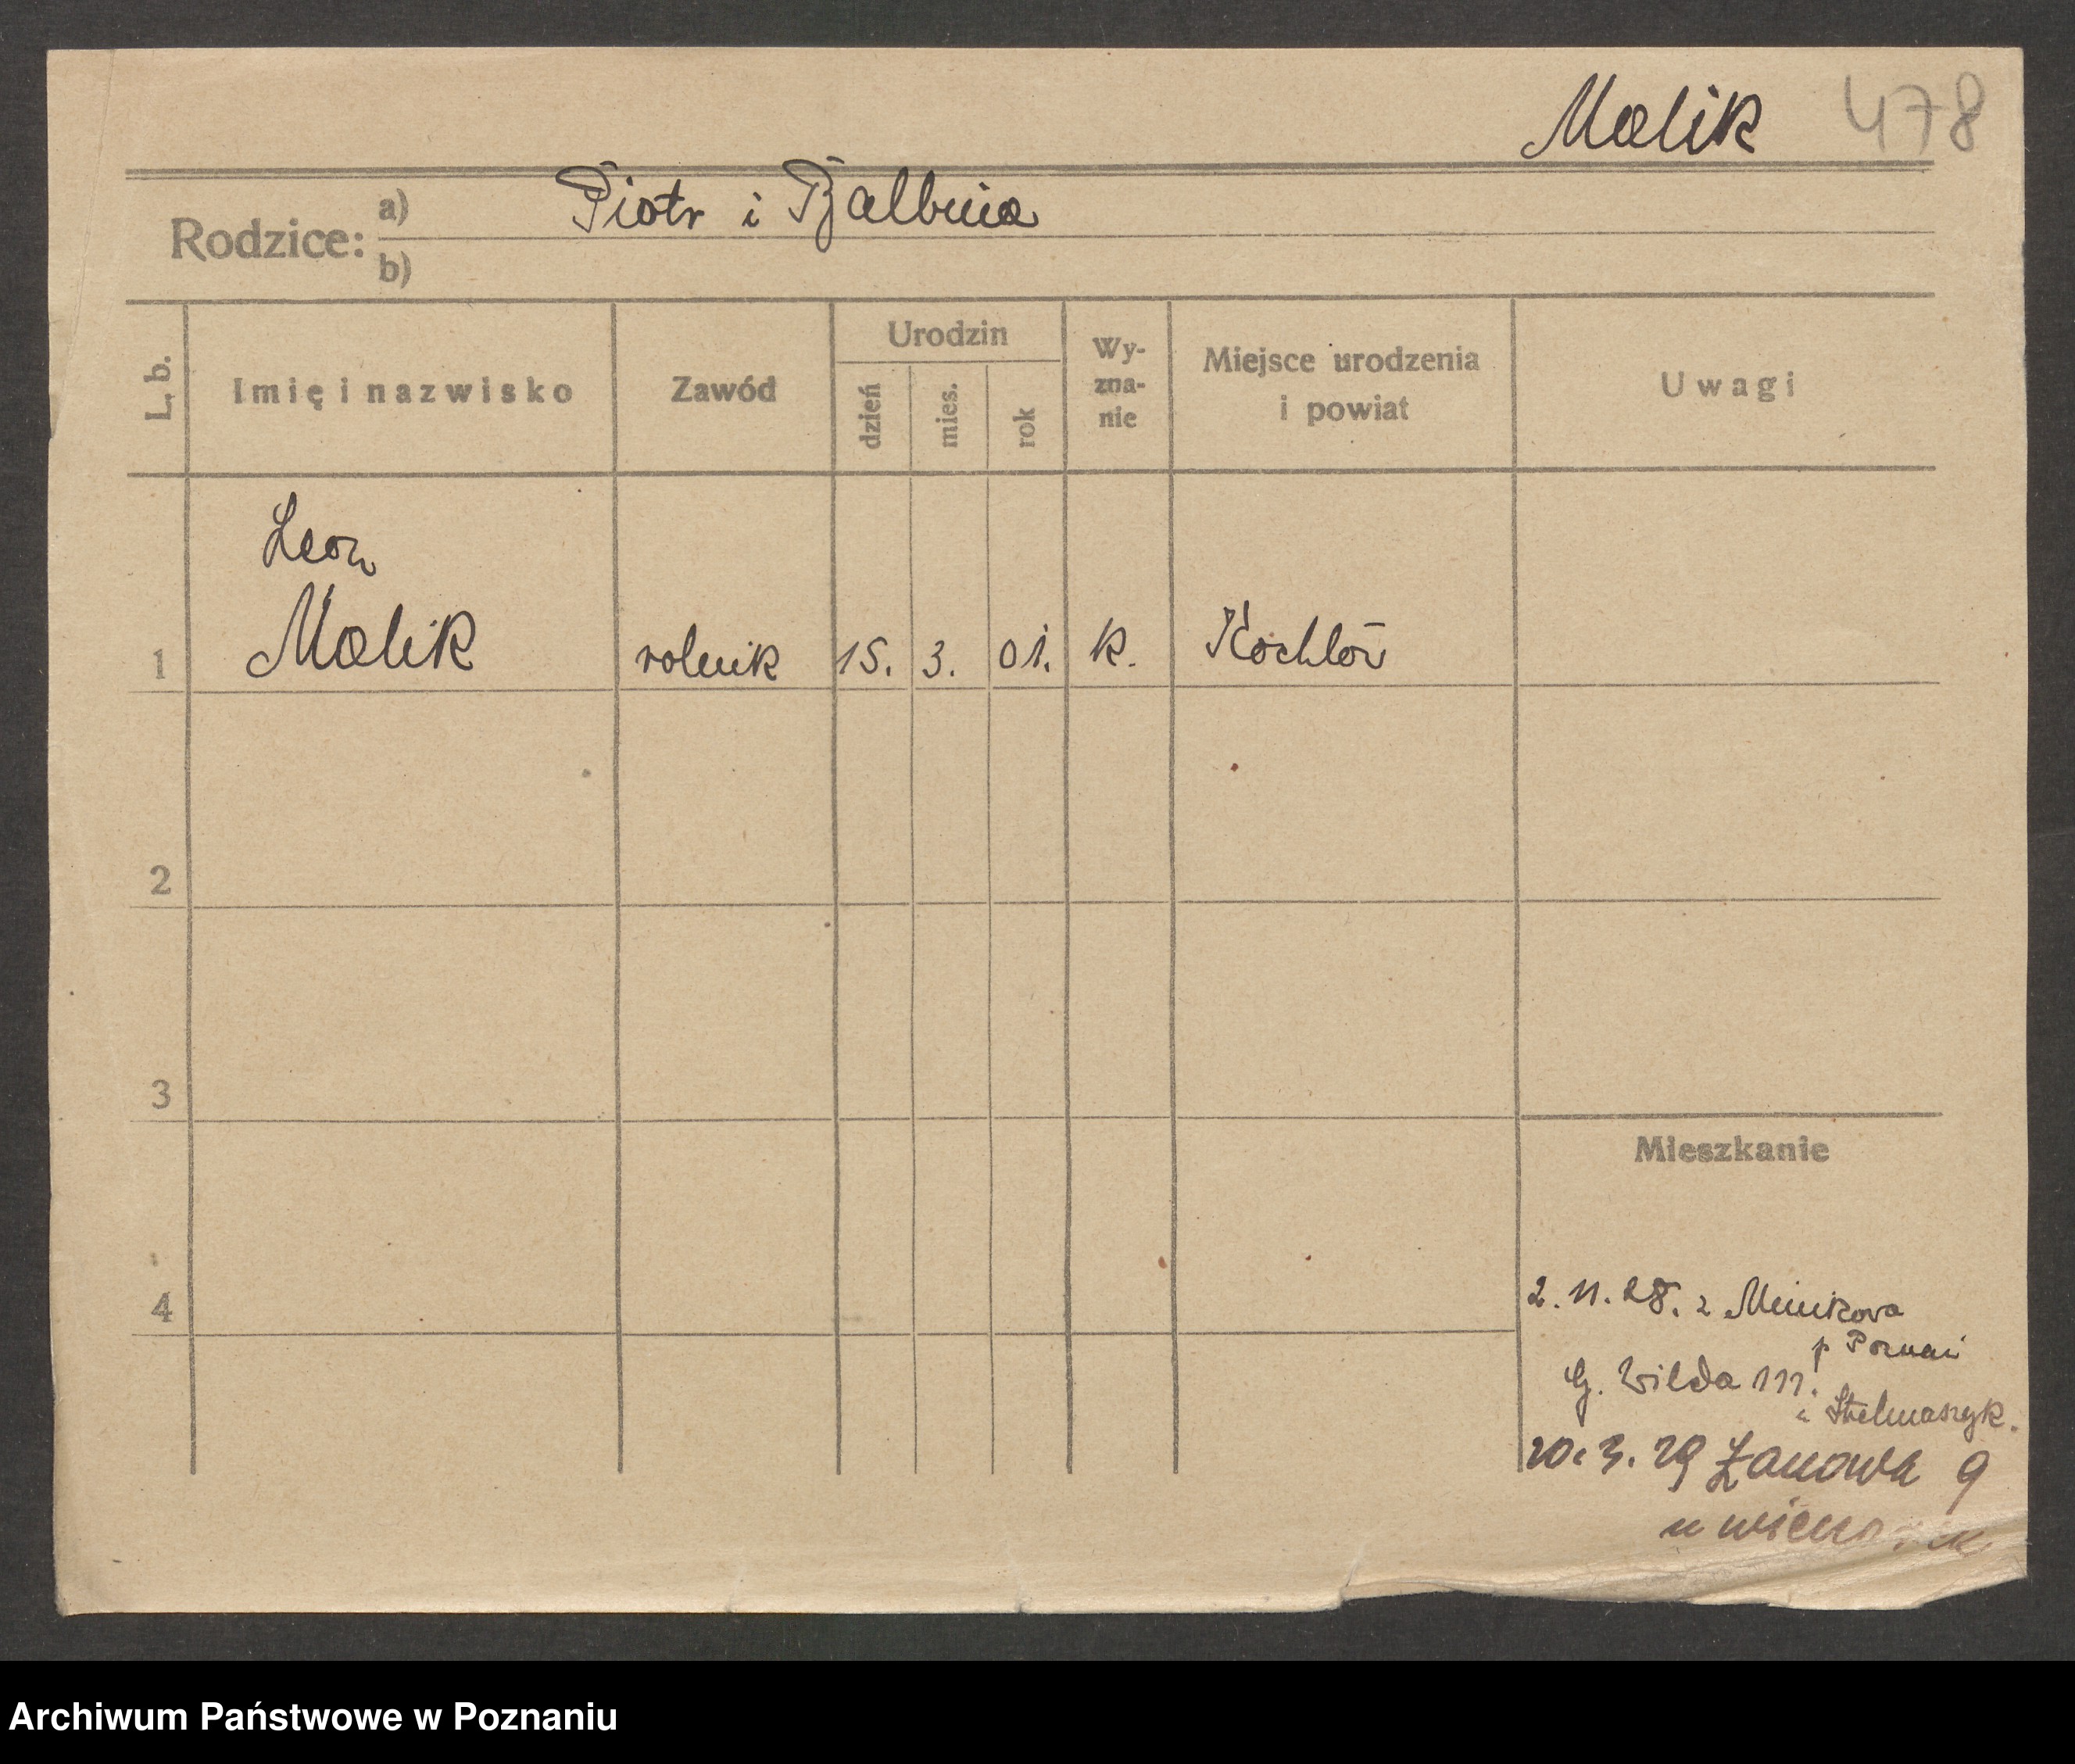 Malik 478
Rodzice: a) Piotr i Balbina
b)
L. b.
Imię i nazwisko
Zawód
Urodzin
dzień
mies.
rok
Wy-
zna-
nie
Miejsce urodzenia
i powiat
Uwagi
Leon
1 Malik rolnik 15. 3. 01. k. Kochlów
2
3
Mieszkanie
4
2. 11. 28. z Minikowa
p Poznań
G. Wilda 111.
u Stelmaszyk.
20. 3. 29 Łanowa 9
u
Archiwum Państwowe w Poznaniu